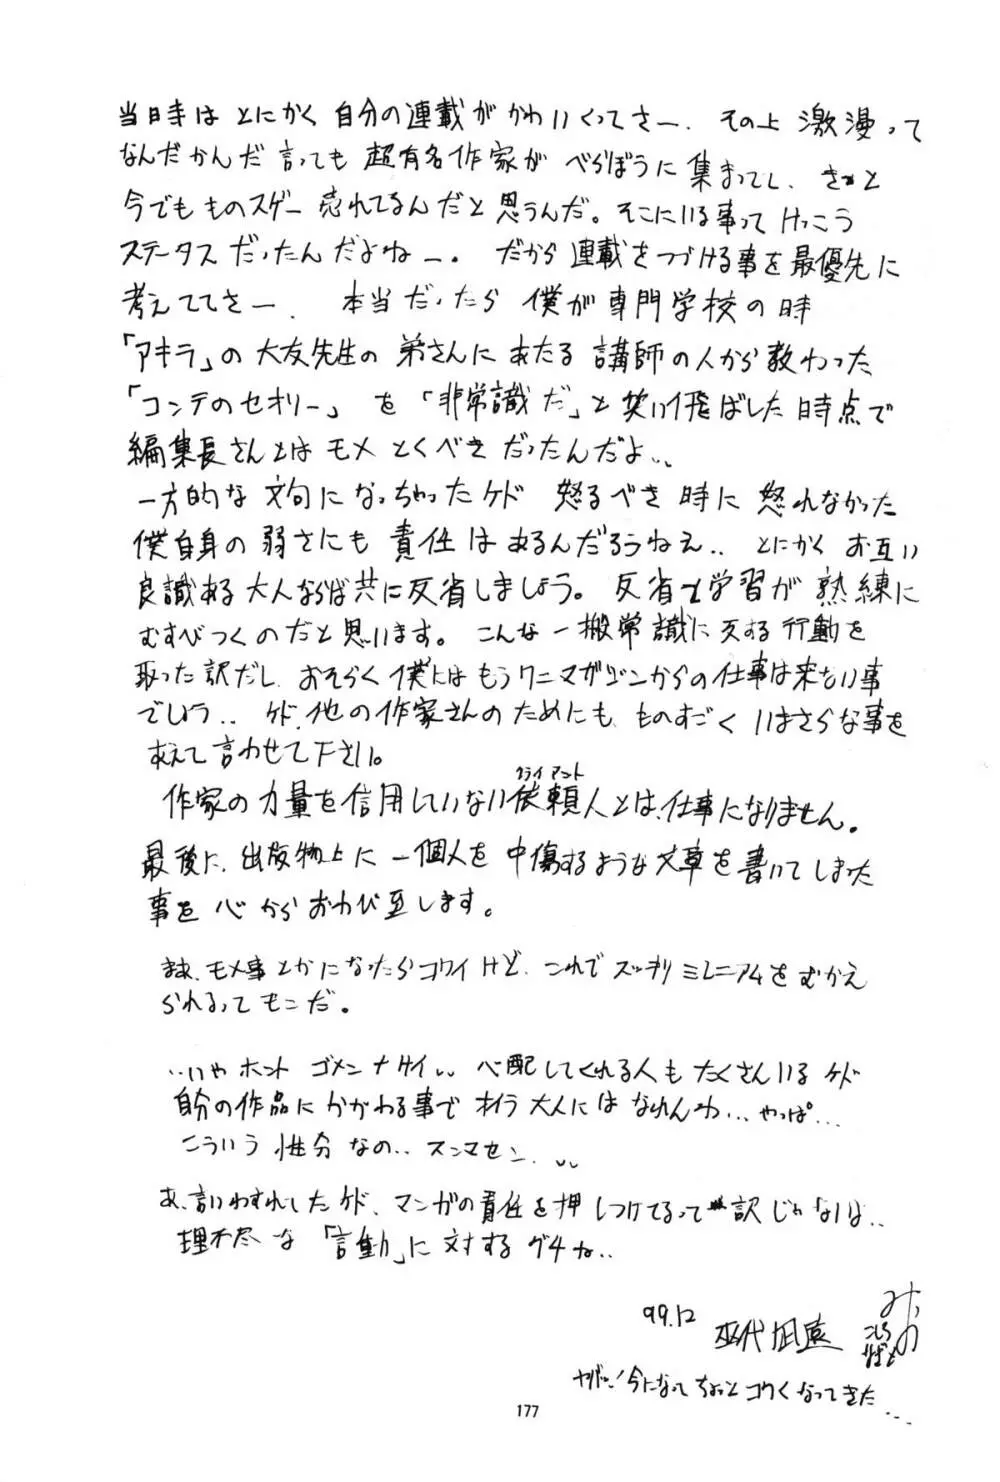 当日寺は とにかく 自分の連載が かわいくってさー. その上 激漫って
なんだかんだ 言っても 超有名作家が べらぼうに 集まってし、きっと
今でも ものスゲー 売れてるんだと 思うんだ。そこにいる事って けっこう
ステータス だったんだよねー. だから 連載をつづける事を 最優先に
考えててさー. 本当だったら 僕が 専門学校の時
「アキラ」の 大友先生の 弟さんに あたる 講師の人から 教わった
「コンテのセオリー」 を 「非常識だ」と 笑い飛ばした 時点で
編集長さんとは モメ とくべき だったんだよ..
一方的な 文句に なっちゃったケド 怒るべき 時に 怒れなかった
僕自身の 弱さにも 責任は あるんだろうねえ.. とにかく お互い
良識ある 大人ならば 共に 反省しましょう。 反省と学習が 熟練に
むすびつくのだと 思います。 こんな 一搬常識に 反する 行動を
取った 訳だし、おそらく 僕には もう ワニマガジンからの 仕事は 来ない事
でしょう.. ケド、他の 作家さんの ためにも、ものすごく いまさらな事を
あえて 言わせて 下さい。
クライアント
作家の 力量を 信用していない 依頼人とは、仕事になりません。
最後に、出版物上に 一個人を 中傷するような 文章を 書いてしまった
事を 心から おわび 致します。
まあ、モメ事とかになったら コワイけど、これで スッキリ ミレニアムを むかえ
られるってモンだ。
..いや ホント ゴメンナサイ.. 心配してくれる人も たくさんいる ケド
自分の作品に かかわる事で オイラ 大人には なれんわ... やっぱ...
こういう 性分 なの.. スンマセン...
あ、言いわすれてしたケド、マンガの責任を 押しつけてるって 訳じゃ ないよ..
理不尽な 「言動」に 対する グチね..
99.12
巫代凪遠
みの
ヤバッ! 今になって ちょっと コワくなってきた...
177